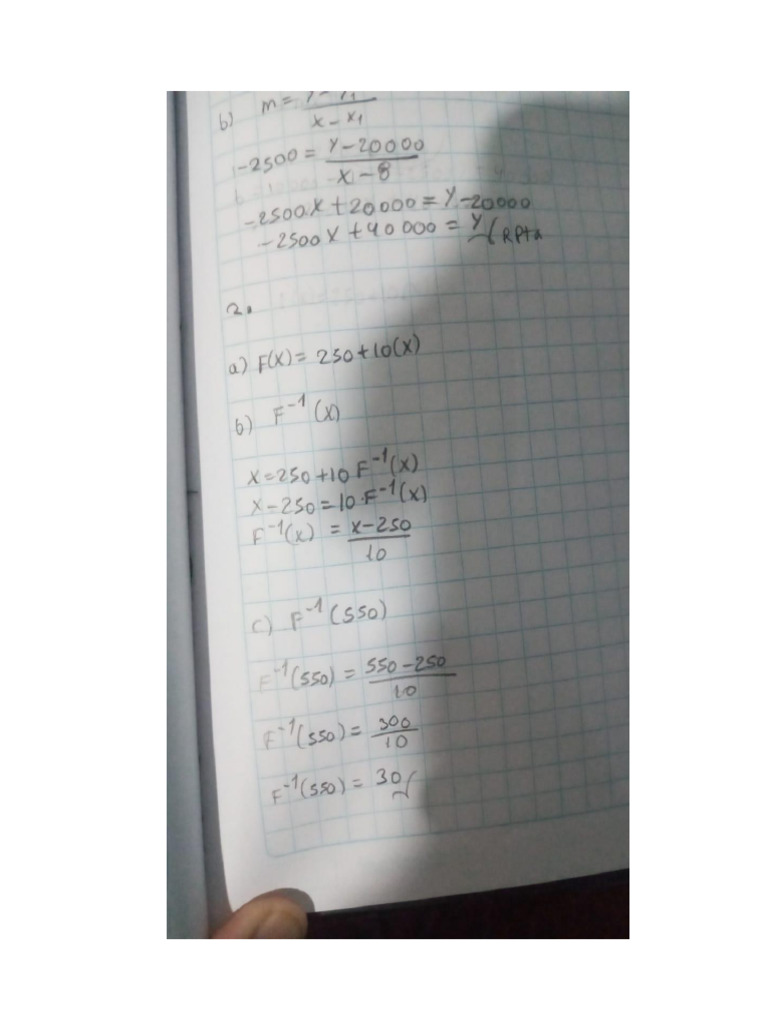 b) m = Y - Y1 / x - x1
-2500 = Y - 20000 / x - 8
-2500x + 20000 = Y - 20000
-2500x + 40000 = Y Rpta
2.
a) F(x) = 250 + 10(x)
b) F⁻¹(x)
x = 250 + 10 F⁻¹(x)
x - 250 = 10·F⁻¹(x)
F⁻¹(x) = x - 250 / 10
c) F⁻¹(550)
F⁻¹(550) = 550 - 250 / 10
F⁻¹(550) = 300 / 10
F⁻¹(550) = 30